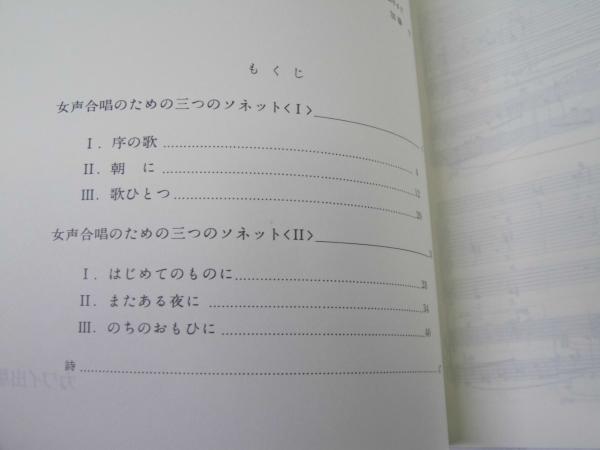 もくじ
女声合唱のための三つのソネット〈I〉
I. 序の歌 4
II. 朝に 12
III. 歌ひとつ 20
女声合唱のための三つのソネット〈II〉
I. はじめてのものに 28
II. またある夜に 34
III. のちのおもひに 46
詩